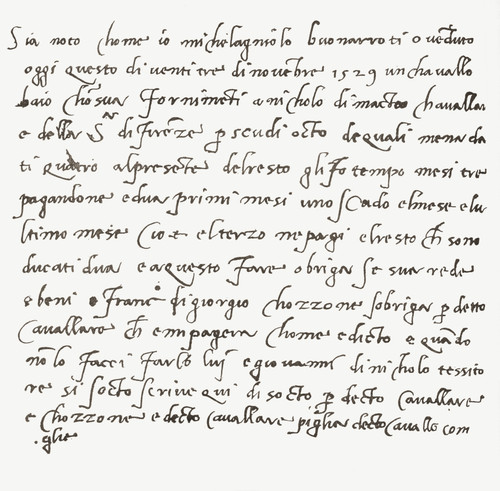 Sia noto chome io michelagniolo buonarroti o ve͞duto
oggi questo di venti tre di nove͞bre 1529 un chavallo
baio cho͞ sua fornime͞ti a nicholo di macteo chavallar
e della S di fire͞ze p scudi octo de quali me na da
ti quatro al presete del resto gli fo tempo mesi tre
pagandone e dua primi mesi uno scudo el mese e lu
ltimo mese cio e el terzo ne pagi el resto ch͞ sono
ducati dua e a questo fare obriga se sua rede
e beni e franc͞o di giorgio chozzone sobriga p decto
cavallare ch͞ e mpagera chome e dicto e qua͞do
no͞ lo facci farlo lui e giovanni di nicholo tessito
re si soctoscrive qui di socto p decto cavallare
e chozzone e decto cavallare piglia decto cavallo com
.glie